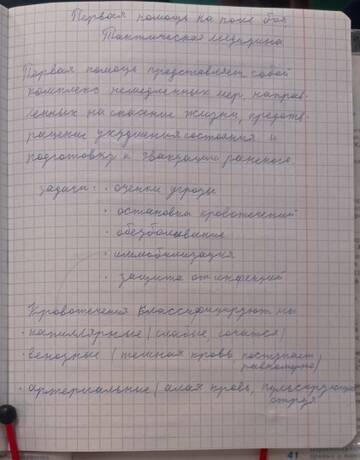 Первая помощь на поле боя
Тактическая медицина
Первая помощь представляет собой
комплекс немедленных мер, направ-
ленных на спасение жизни, предотв-
ращение ухудшения состояния и
подготовку к эвакуации раненого
Задачи: · оценки угрозы
· остановка кровотечений
· обезболивание
· иммобилизация
· защита от инфекций
Кровотечения классифицируют на
· капиллярные (слабые, сочатся)
· венозные (темная кровь поступает
равномерно)
· артериальные (алая кровь, пульсирующая
струя
41